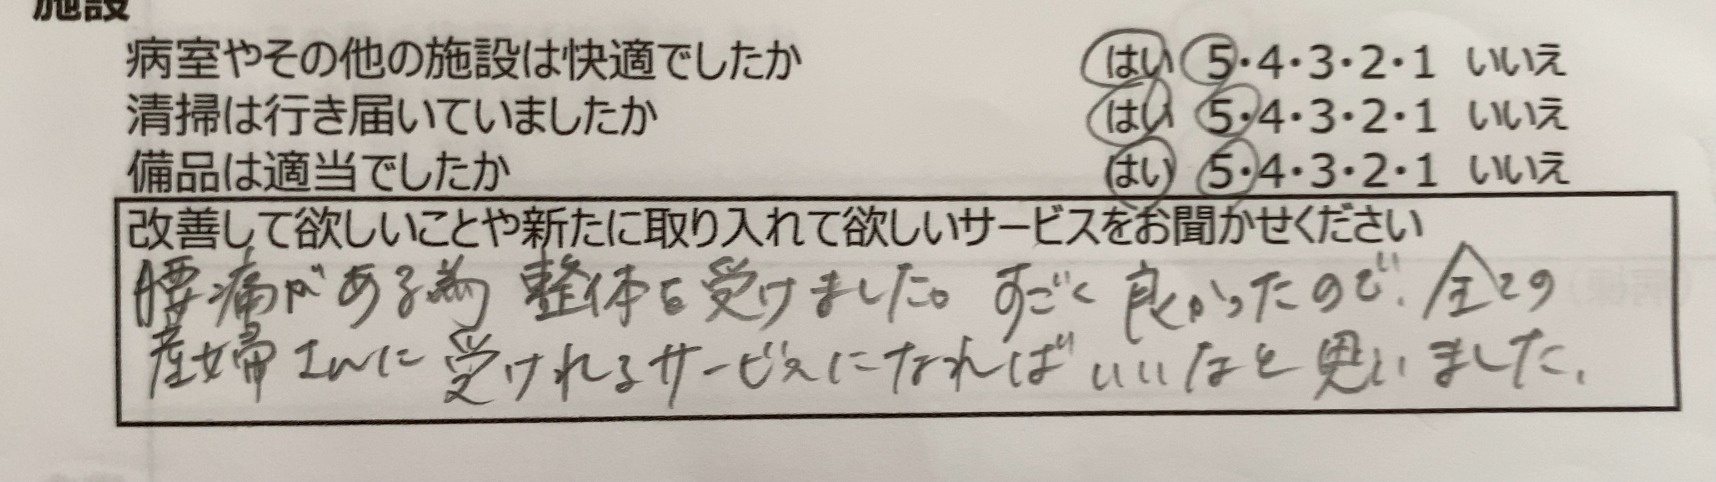 施設
病室やその他の施設は快適でしたか はい 5・4・3・2・1 いいえ
清掃は行き届いていましたか はい 5・4・3・2・1 いいえ
備品は適当でしたか はい 5・4・3・2・1 いいえ
改善して欲しいことや新たに取り入れて欲しいサービスをお聞かせください
腰痛がある為 整体を受けました。すごく良かったので、全ての
産婦さんに受けれるサービスになればいいなと思いました。